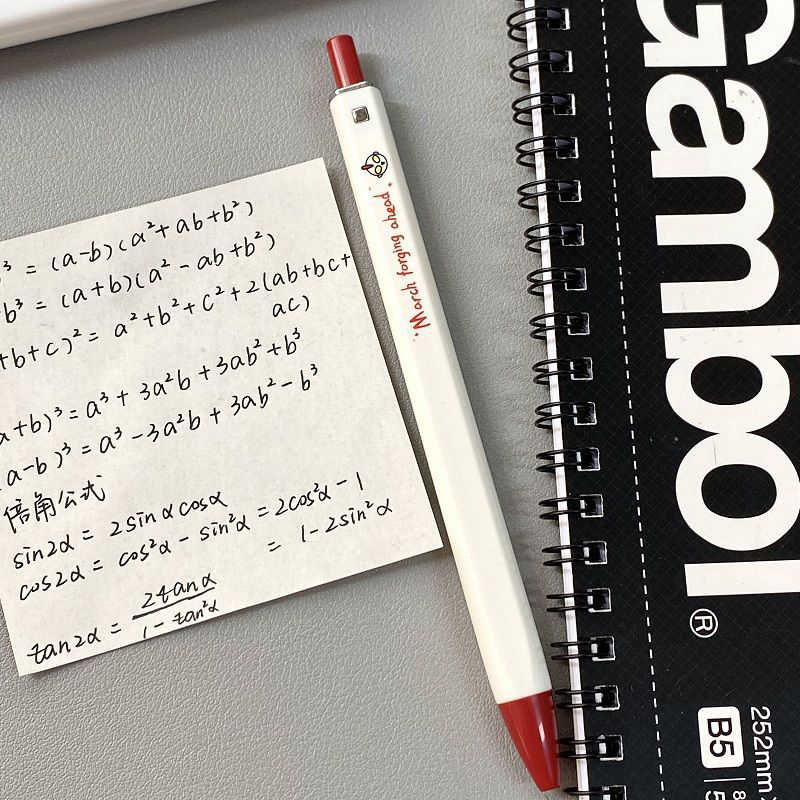 ³ = (a-b)(a²+ab+b²)
b³ = (a+b)(a²-ab+b²)
+b+c)² = a²+b²+c²+2(ab+bc+
ac)
a+b)³ = a³+3a²b+3ab²+b³
(a-b)³ = a³-3a²b+3ab²-b³
倍角公式
sin2α = 2sinαcosα
cos2α = cos²α-sin²α = 2cos²α-1
= 1-2sin²α
tan2α = 2tanα / 1-tan²α
March forging ahead
Gambol®
B5
252mm